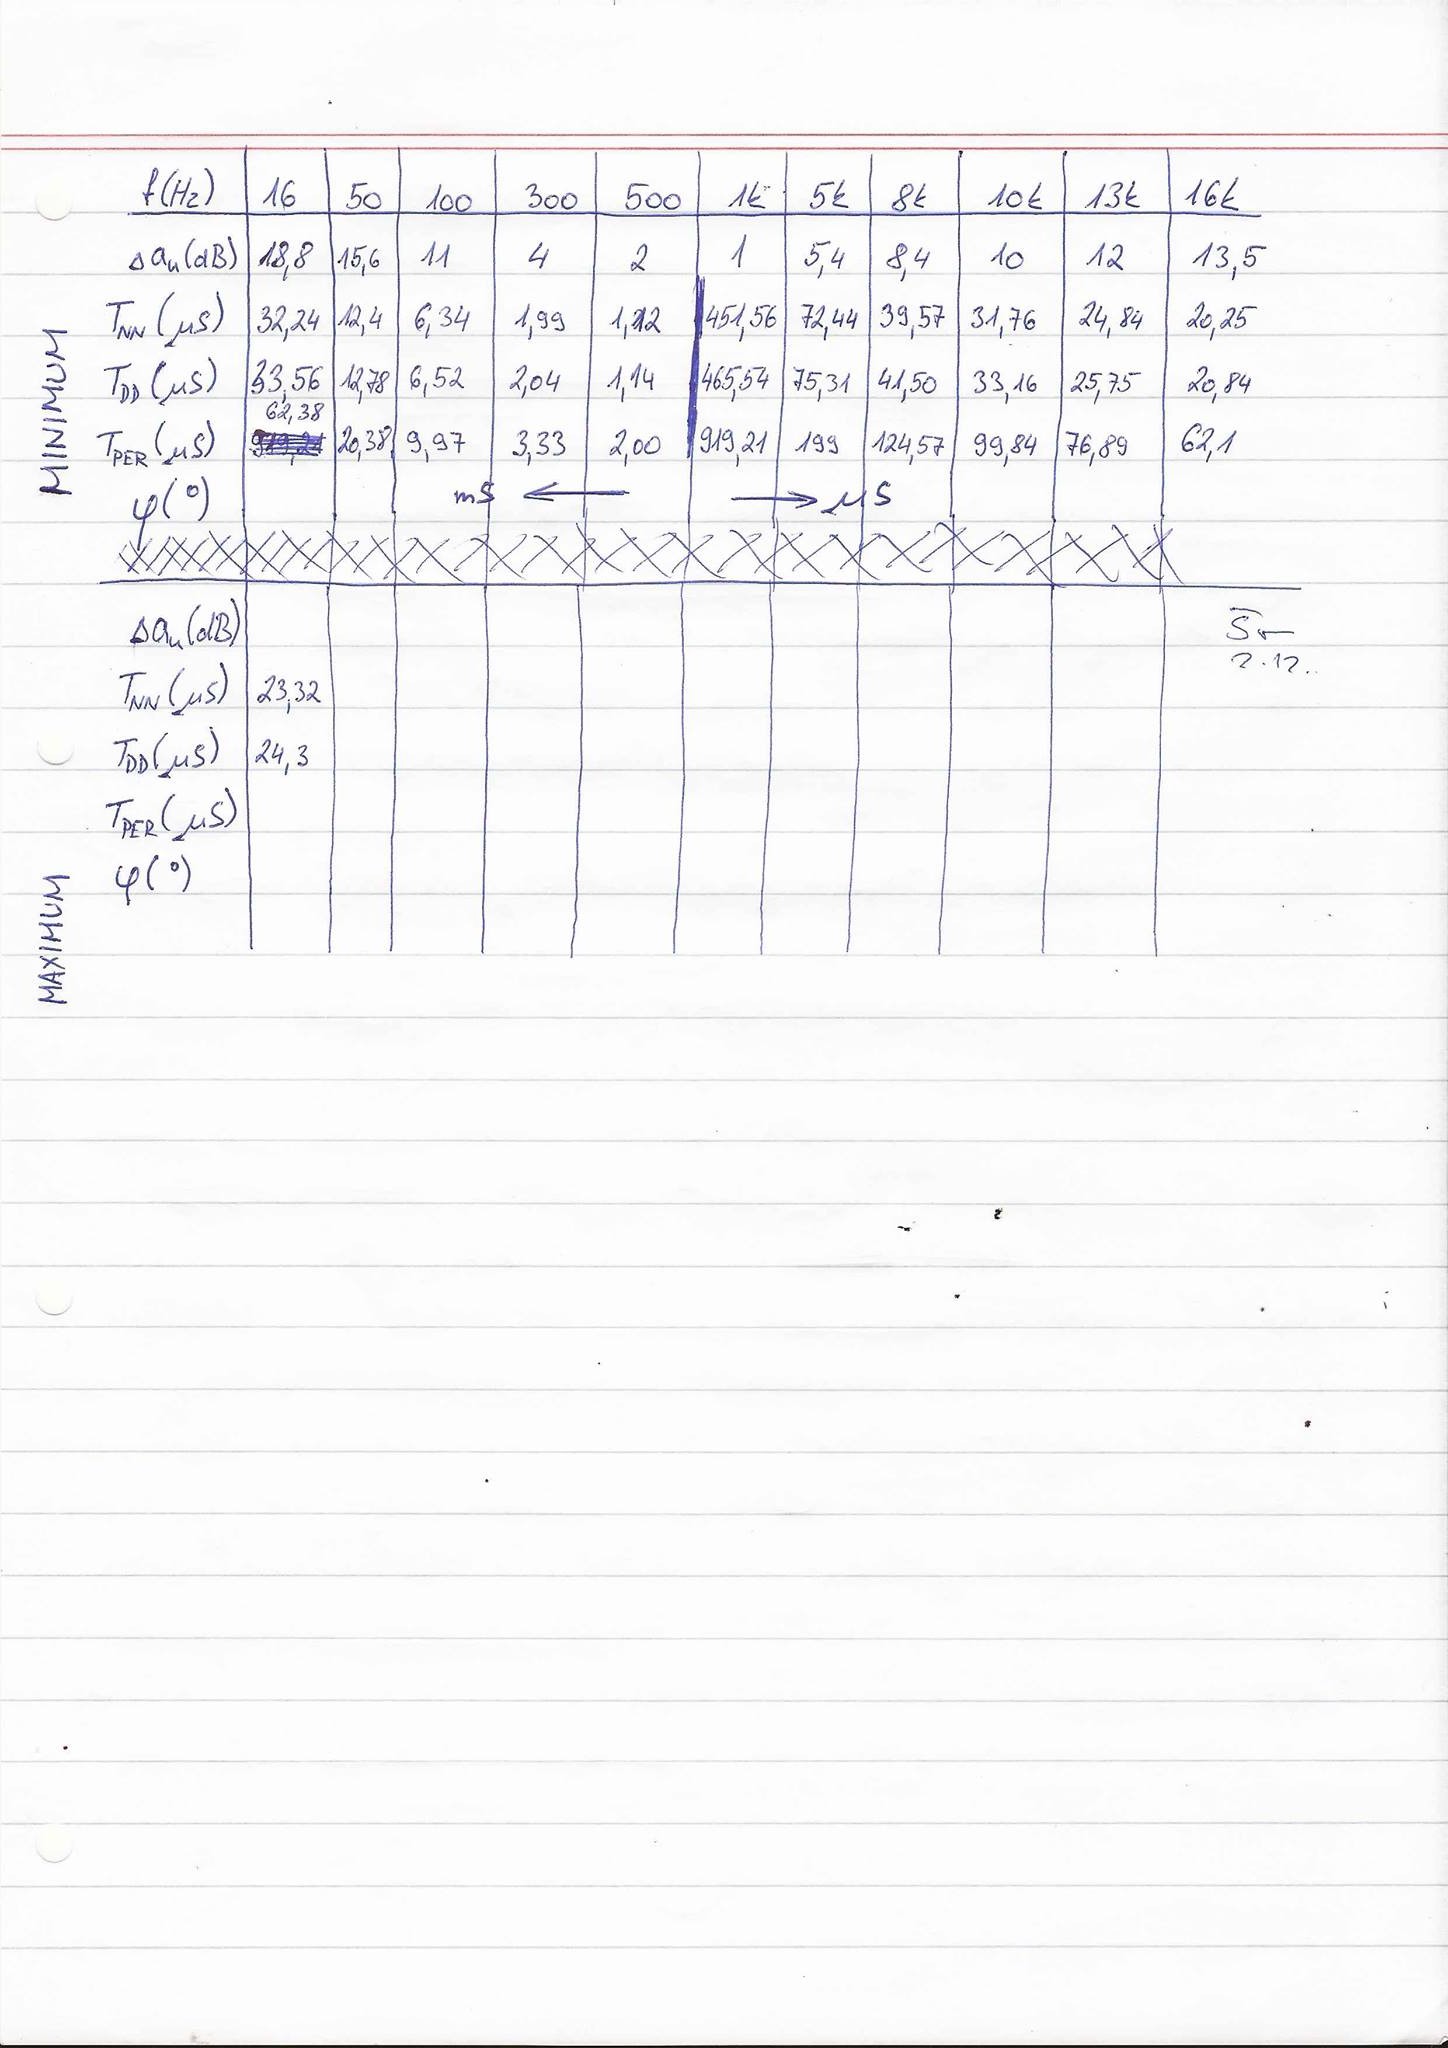 f(Hz) 16 50 100 300 500 1k 5k 8k 10k 13k 16k
Δau(dB) 18,8 15,6 11 4 2 1 5,4 8,4 10 12 13,5
MINIMUM
TNN(μS) 32,24 12,4 6,34 1,99 1,12 451,56 72,44 39,57 31,76 24,84 20,25
TDD(μS) 33,56 12,78 6,52 2,04 1,14 465,54 75,31 41,50 33,16 25,75 20,84
62,38
TPER(μS) 20,38 9,97 3,33 2,00 919,21 199 124,57 99,84 76,89 62,1
φ(°) mS ← → μS
Δau(dB)
2.12.
TNN(μS) 23,32
TDD(μS) 24,3
TPER(μS)
φ(°)
MAXIMUM